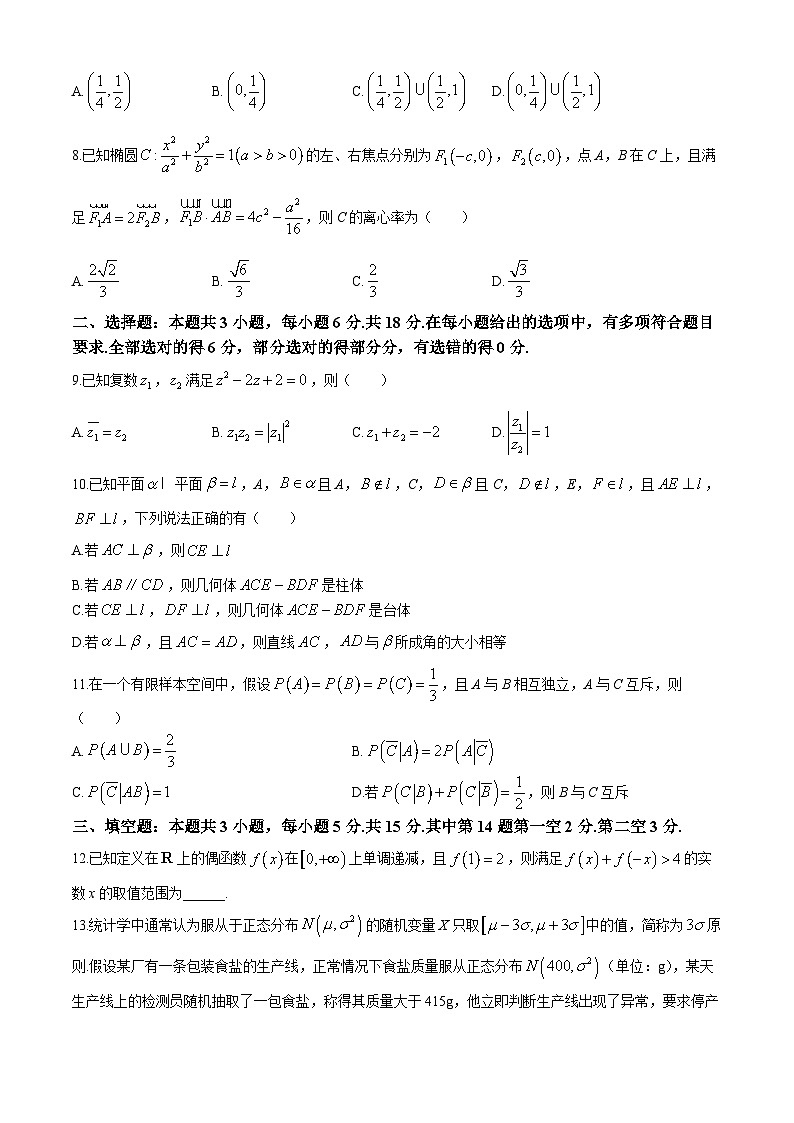 A. (1/4, 1/2) B. (0, 1/4) C. (1/4, 1/2)∪(1/2, 1) D. (0, 1/4)∪(1/2, 1)
8.已知椭圆 C: x²/a² + y²/b² = 1(a > b > 0) 的左、右焦点分别为 F₁(−c,0)，F₂(c,0)，点 A，B 在 C 上，且满
足 F₁A = 2F₂B，F₁B · AB = 4c² − a²/16，则 C 的离心率为（ ）
A. 2√2/3 B. √6/3 C. 2/3 D. √3/3
二、选择题：本题共 3 小题，每小题 6 分.共 18 分.在每小题给出的选项中，有多项符合题目
要求.全部选对的得 6 分，部分选对的得部分分，有选错的得 0 分.
9.已知复数 z₁，z₂ 满足 z² − 2z + 2 = 0，则（ ）
A. z̅₁ = z₂ B. z₁z₂ = |z₁|² C. z₁ + z₂ = −2 D. |z₁/z₂| = 1
10.已知平面 α I 平面 β = l，A，B ∈ α 且 A，B ∉ l，C，D ∈ β 且 C，D ∉ l，E，F ∈ l，且 AE ⊥ l，
BF ⊥ l，下列说法正确的有（ ）
A.若 AC ⊥ β，则 CE ⊥ l
B.若 AB // CD，则几何体 ACE − BDF 是柱体
C.若 CE ⊥ l，DF ⊥ l，则几何体 ACE − BDF 是台体
D.若 α ⊥ β，且 AC = AD，则直线 AC，AD 与 β 所成角的大小相等
11.在一个有限样本空间中，假设 P(A) = P(B) = P(C) = 1/3，且 A 与 B 相互独立，A 与 C 互斥，则
（ ）
A. P(A∪B) = 2/3 B. P(C̅|A) = 2P(A|C̅)
C. P(C̅|AB) = 1 D.若 P(C|B) + P(C|B̅) = 1/2，则 B 与 C 互斥
三、填空题：本题共 3 小题，每小题 5 分.共 15 分.其中第 14 题第一空 2 分.第二空 3 分.
12.已知定义在 R 上的偶函数 f(x) 在 [0,+∞) 上单调递减，且 f(1) = 2，则满足 f(x) + f(−x) > 4 的实
数 x 的取值范围为______.
13.统计学中通常认为服从于正态分布 N(μ,σ²) 的随机变量 X 只取 [μ − 3σ, μ + 3σ] 中的值，简称为 3σ 原
则.假设某厂有一条包装食盐的生产线，正常情况下食盐质量服从正态分布 N(400,σ²)（单位：g），某天
生产线上的检测员随机抽取了一包食盐，称得其质量大于 415g，他立即判断生产线出现了异常，要求停产